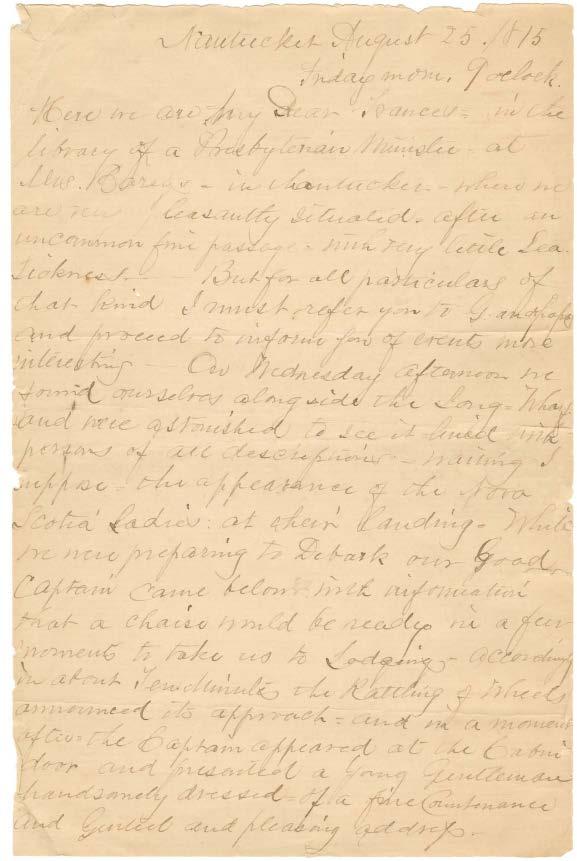 Nantucket August 25. 1815
Friday morn. 9 oclock.
Here we are my Dear Frances = in the
library of a Presbyterian Minister - at
Mrs. - in Nantucket - where we
are very pleasantly situated - after an
uncommon fine passage - with very little Sea
Sickness. - But for all particulars of
that kind I must refer you to Grandpapa
and proceed to inform you of events more
interesting - On Wednesday afternoon we
found ourselves alongside the Long = Wharf
and were astonished to see it lined with
persons of all descriptions - waiting I
suppose - the appearance of the Nova
Scotia Ladies: at their landing - While
we were preparing to Debark our Good
Captain came below with information
that a chaise would be ready in a few
moments to take us to Lodging - According
in about Ten Minutes the Rattling of Wheels
announced its approach = and in a moment
after = the Captain appeared at the Cabin
door and presented a Young Gentleman
handsomely dressed = of a fine Countenance
and Genteel and pleasing address -